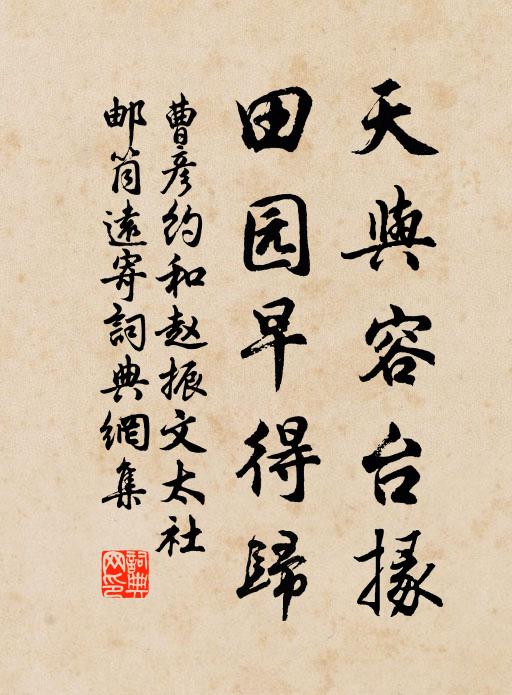 天與容台掾
田园早得歸
曹彦约和赵振文太社
邮筒遠寄詞典網集
詞典网印